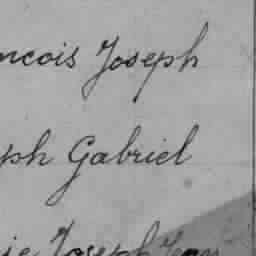 ncois Joseph
ph Gabriel
ie Joseph Jean